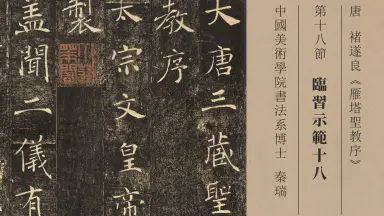 唐 褚遂良《雁塔聖教序》
第十八節 臨習示範十八
中國美術學院書法系博士 秦瑞
大唐三藏聖
教序
太宗文皇帝
製
蓋聞二儀有